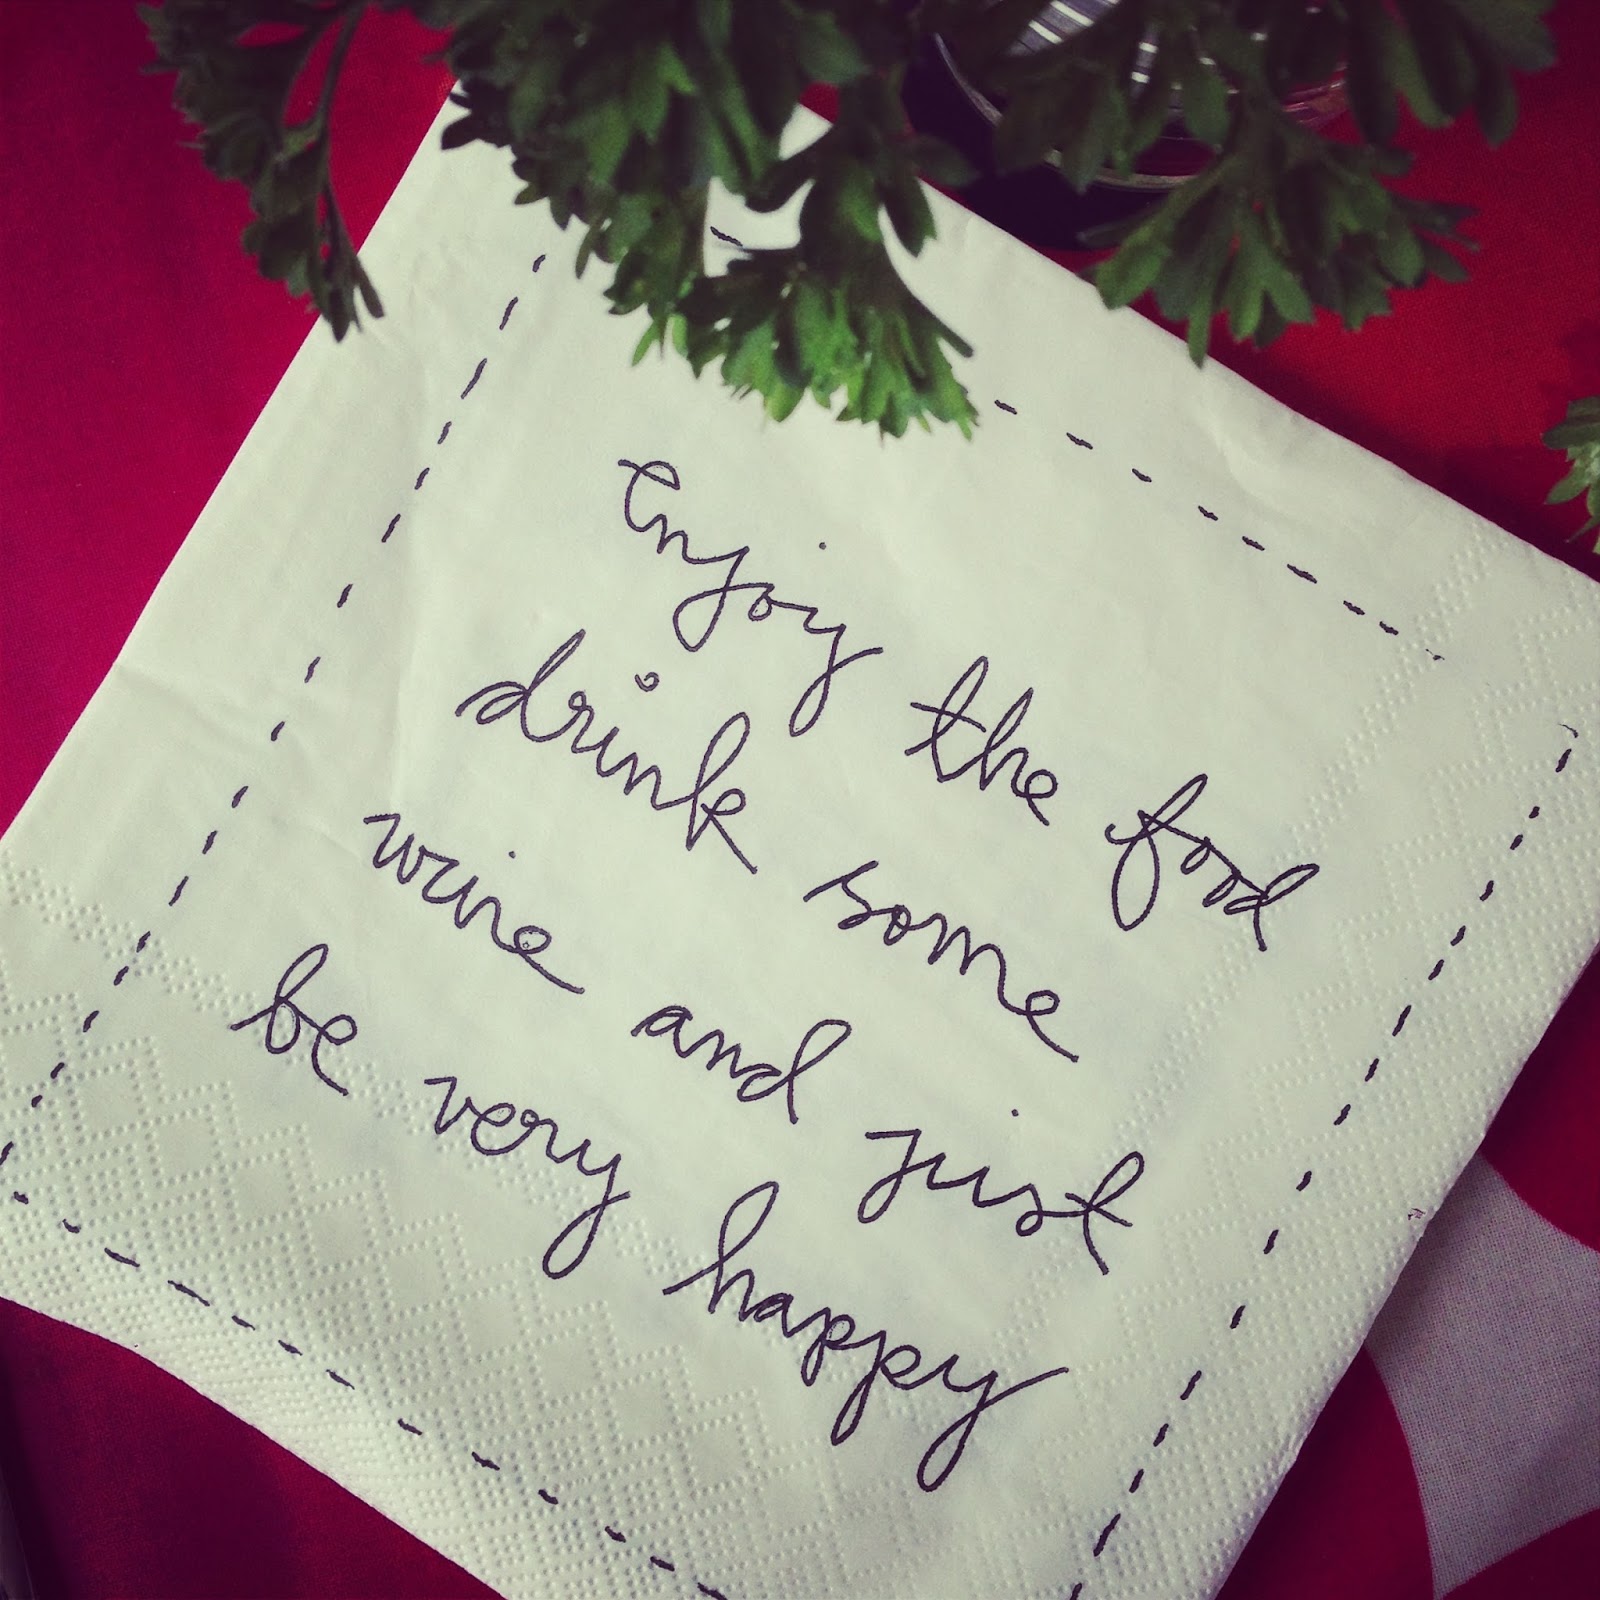 enjoy the food
drink some
wine and just
be very happy